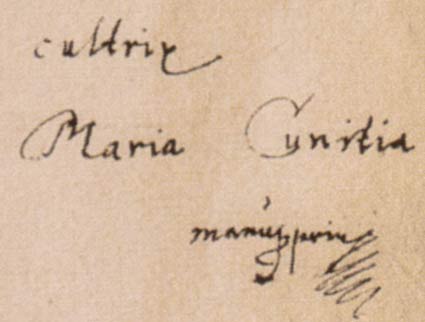 cultrix
Maria Cunitia
manu